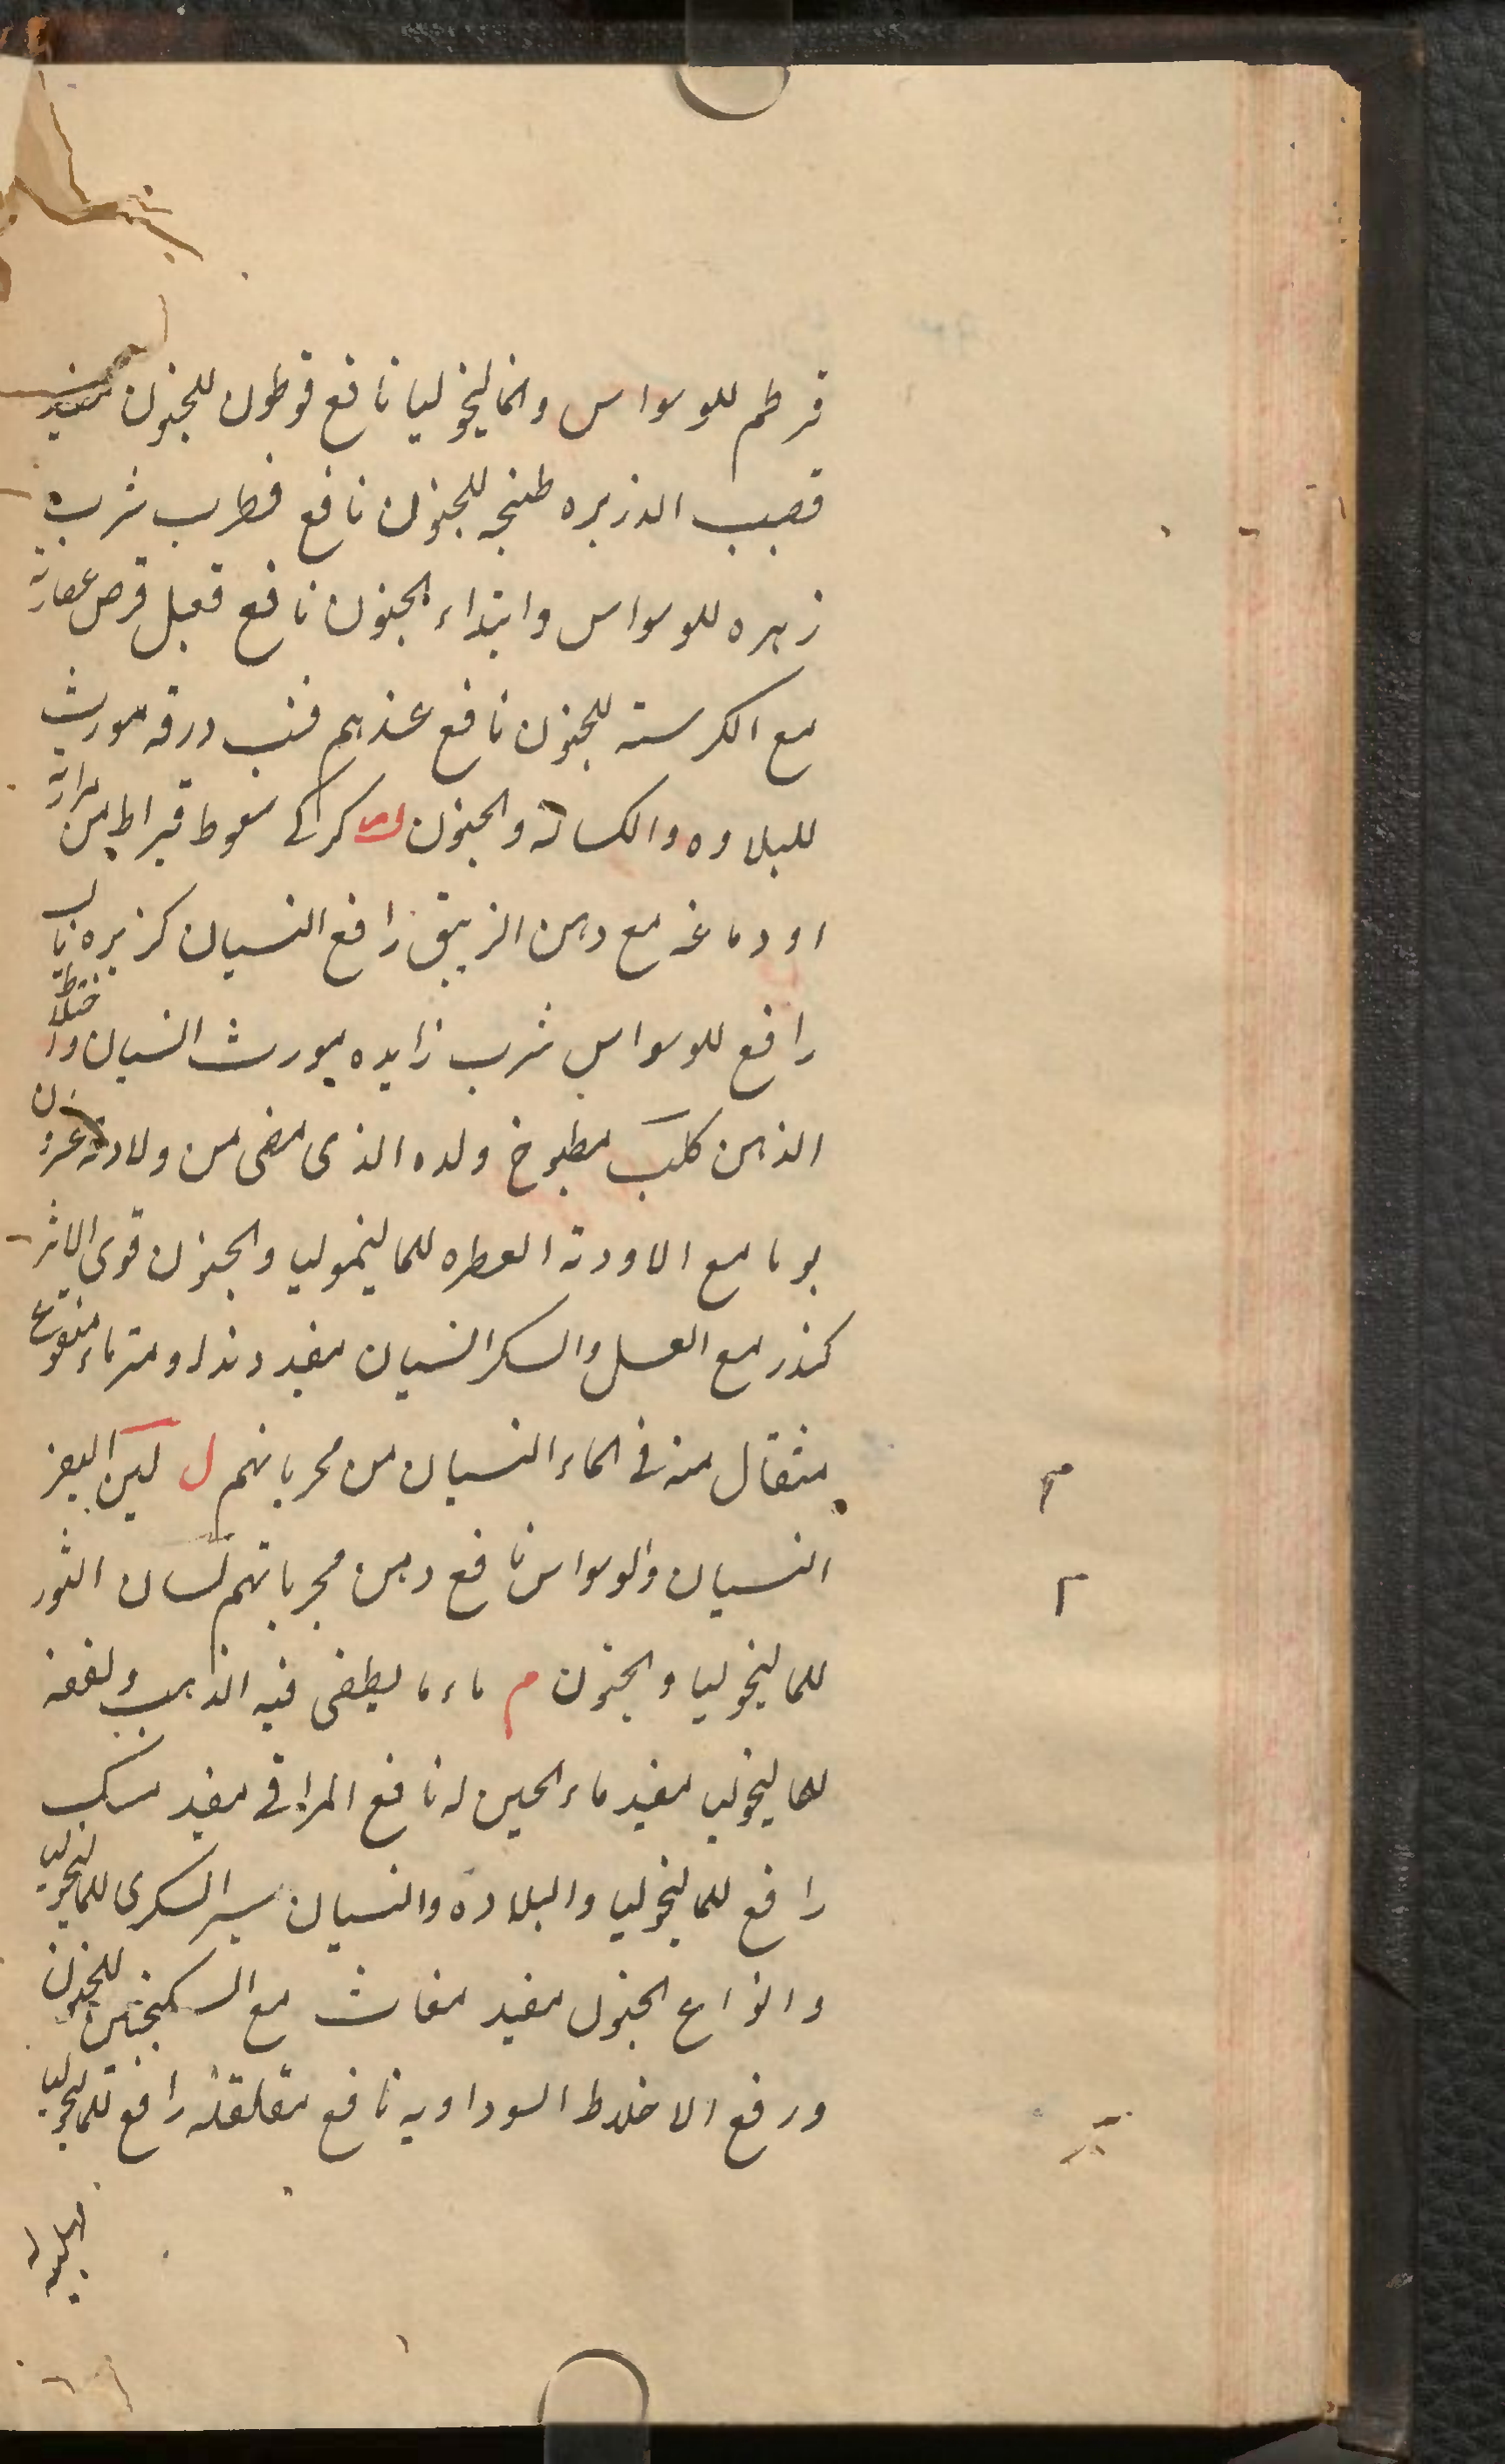 قرطم للوسواس والماليخوليا نافع قوطون للجنون مفيد
قصب الذريره طبخه للجنون نافع قطرب شرب
زهره للوسواس وابتداء الجنون نافع قعبل قرص عصارته
مع الكرسنه للجنون نافع عندهم قنب ورقه مورث
للبلاده والكسالة والجنون ك كركي سعوط قيراط من مرارته
او دماغه مع دهن الزيبق رافع النسيان كزبره يابس
رافع للوسواس شرب زايده يورث النسيان واختلاط
الذهن كلب مطبوخ ولده الذى مضى من ولادته عشرون
يوما مع الاودية العطره للماليخوليا والجنون قوى الاثر
كندر مع العسل والسكر النسيان مفيد ومداومة ماء منقوع
مثقال منه فى الماء النسيان من مجرباتهم ل لبن المعز
النسيان والوسواس نافع ومن مجرباتهم لسان الثور
للماليخوليا والجنون م ماء ما يطفى فيه الذهب والفضه
للماليخوليا مفيد ماء الجبن له نافع المراقى مفيد مسك
رافع للماليخوليا والبلادة والنسيان السكرى للماليخوليا
وانواع الجنون مفيد مغاث مع السكنجبين للجنون
ورفع الاخلاط السوداويه نافع مقلقله رافع للماليخوليا